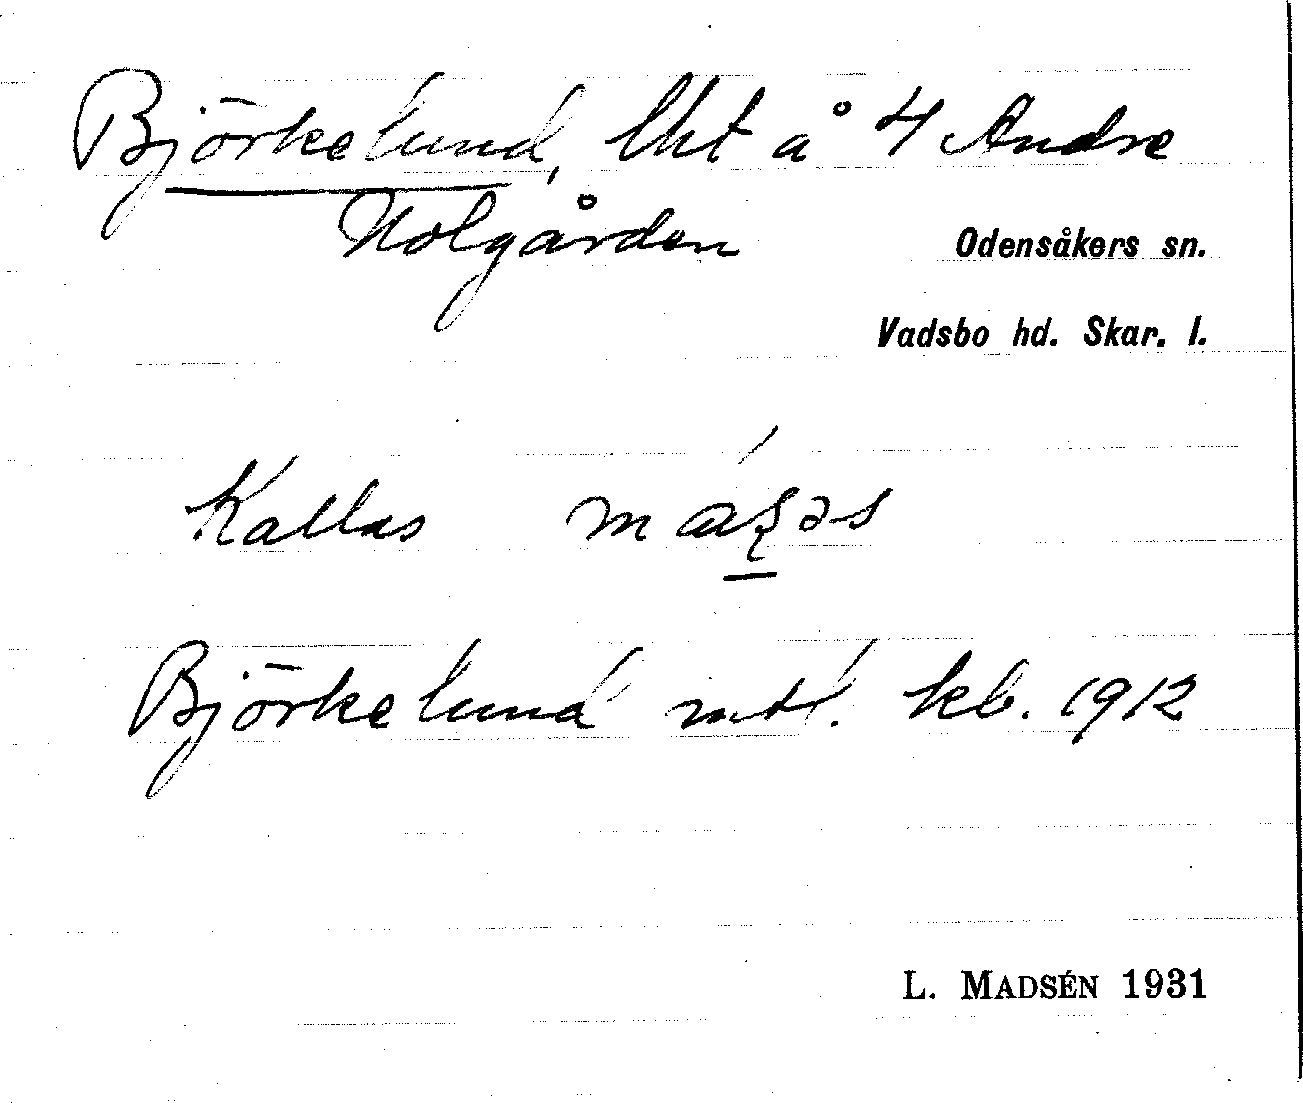 Björkelund, lht å 4 Andre
Nolgården
Odensåkers sn.
Vadsbo hd. Skar. l.
Kallas
Björkelund mtl. kb. 1912
L. MADSÉN 1931